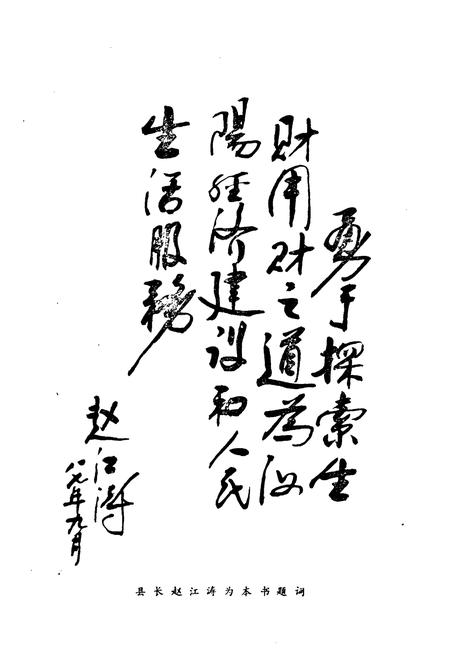 勇于探索生
财用财之道为汝
陽经济建设和人民
生活服務
赵江涛
八七年九月
县长赵江涛为本书题词